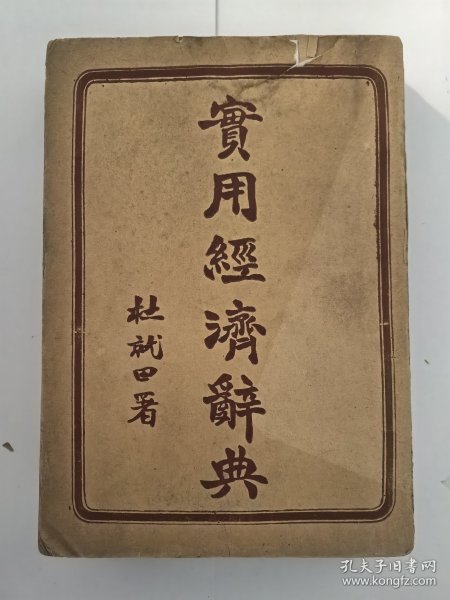 實用經濟辭典
杜就田署
孔夫子旧书网
www.kongfz.com